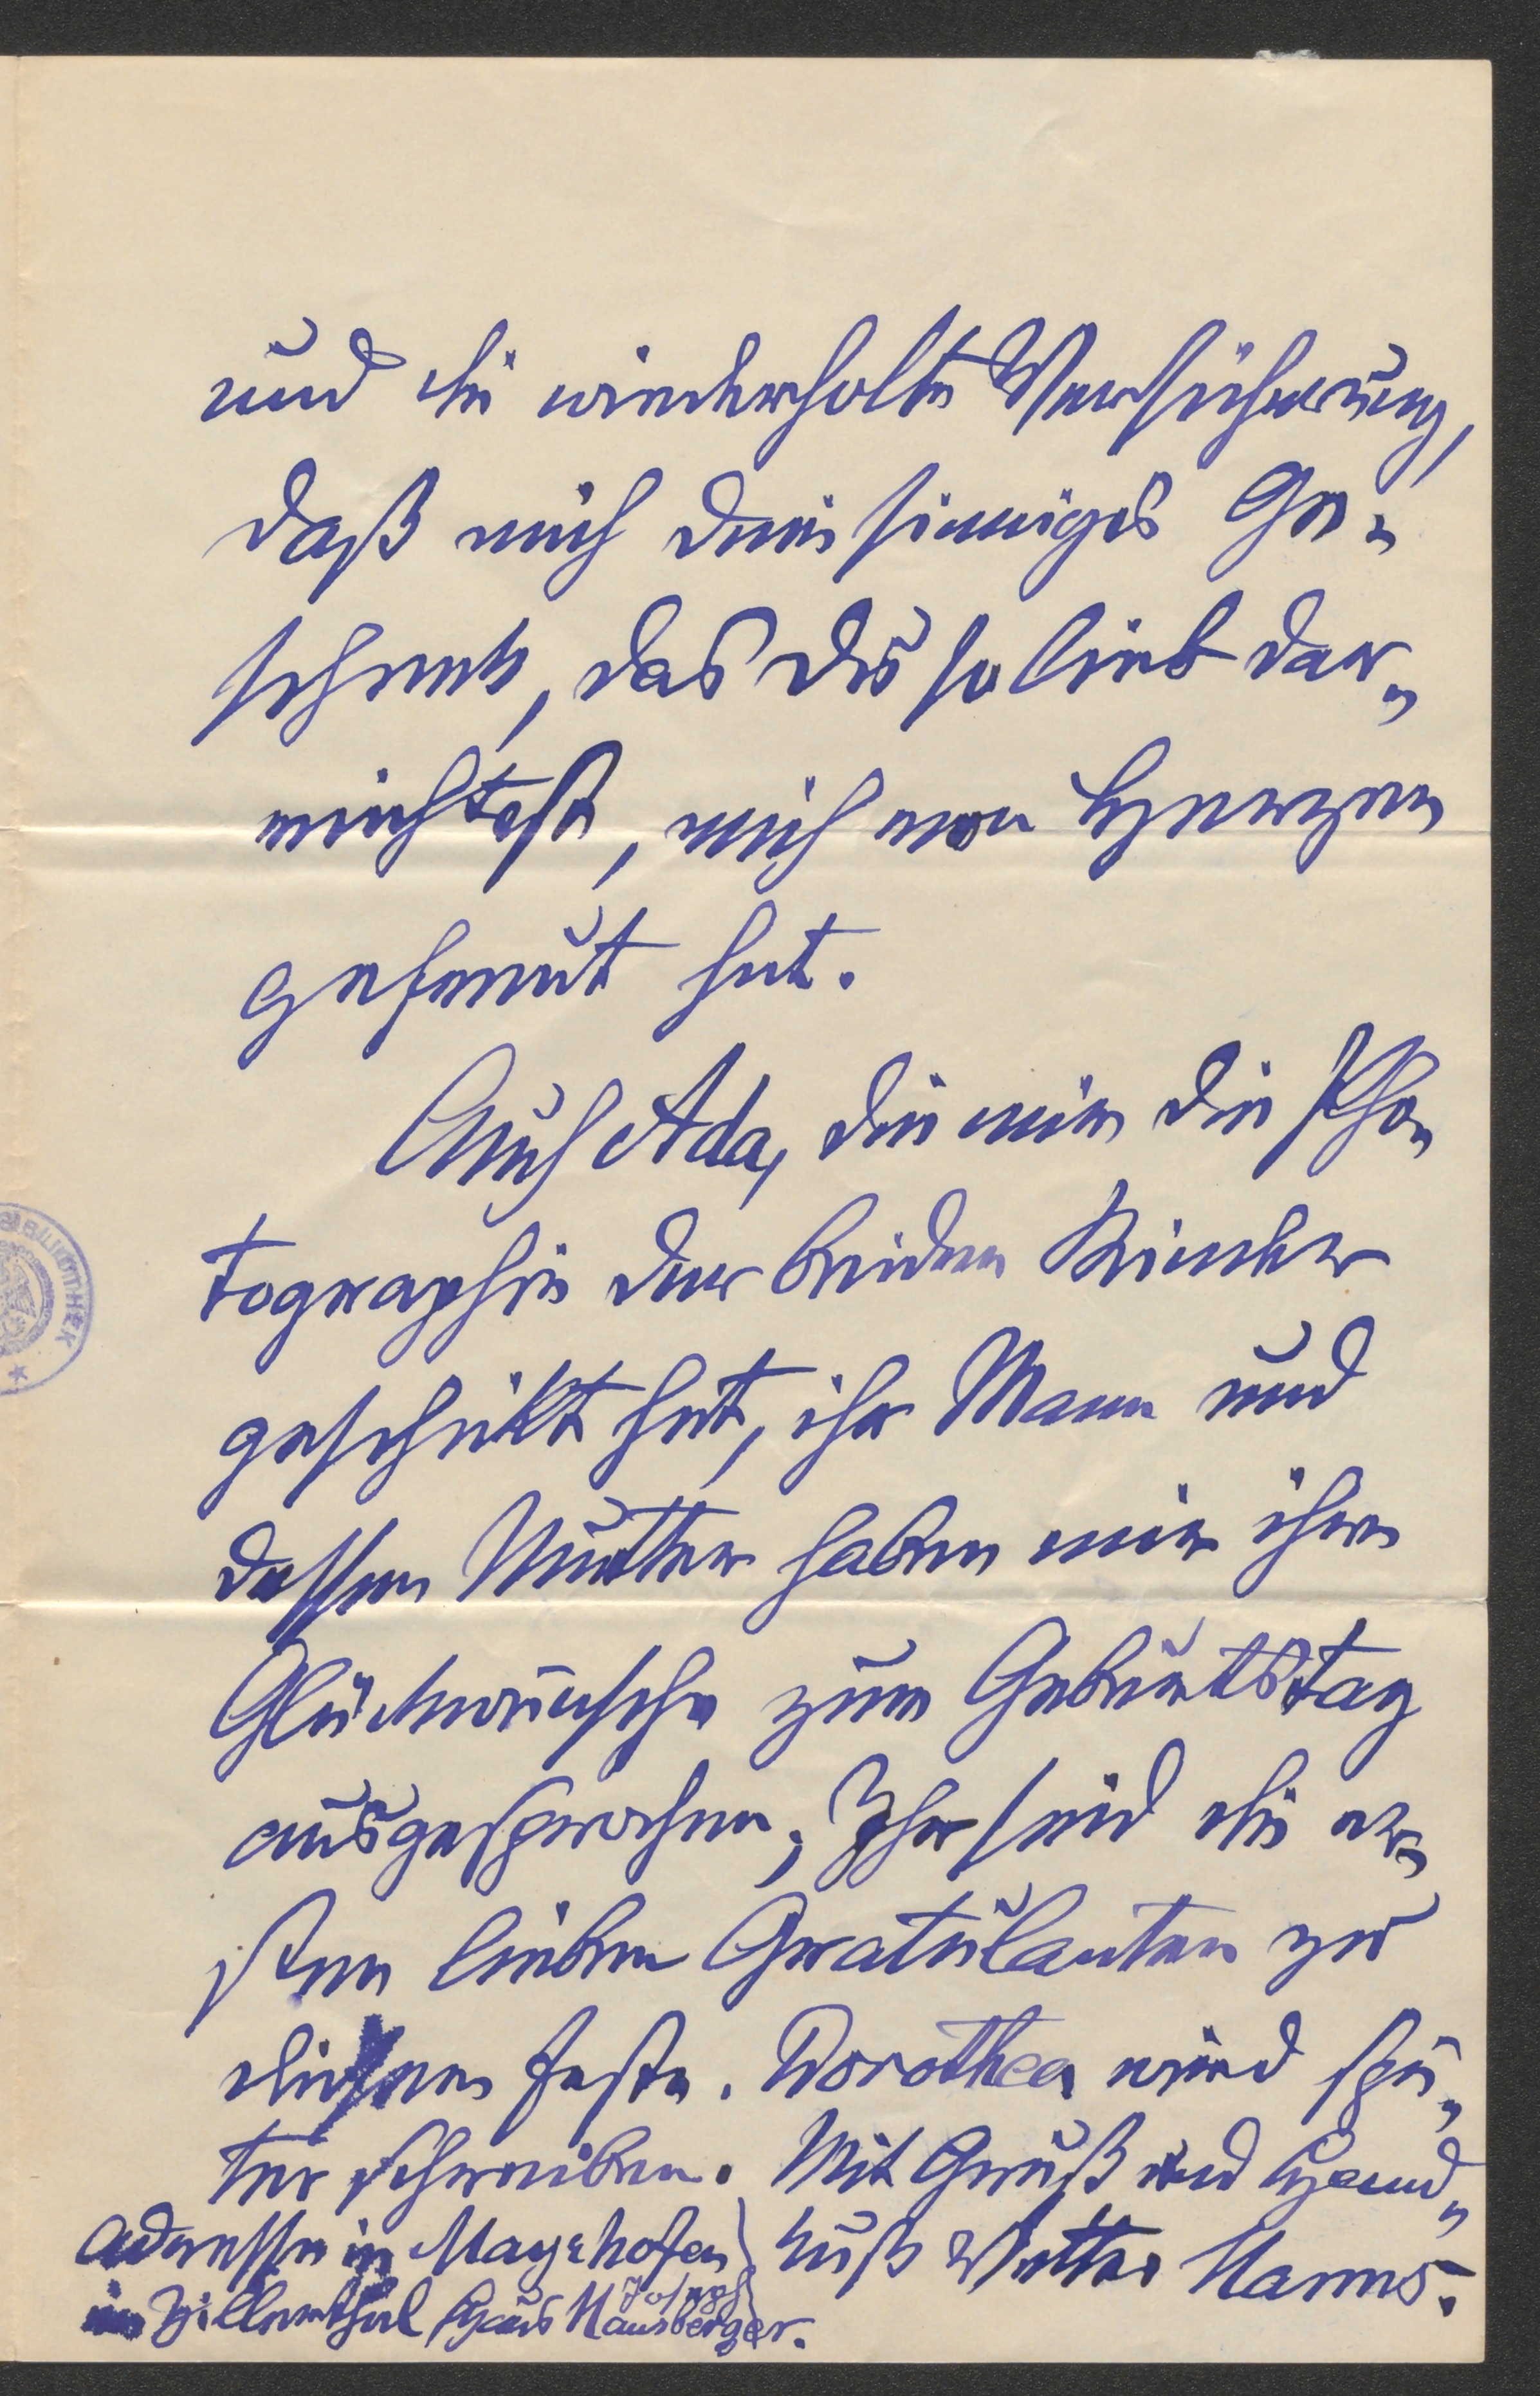 und die wiederholte Versicherung,
daß mich dein sinniges Ge-
schenk, das Du so lieb dar-
reichtest, mich von Herzen
gefreut hat.
Auch Ada, die mir die Pho-
tographie der beiden Kinder
geschikt hat, ihr Mann und
dessen Mutter haben mir ihre
Glückwünsche zum Geburtstag
ausgesprochen; Ihr seid die er-
sten lieben Gratulanten zu
diesem Feste. Dorothea wird spä-
ter schreiben. Mit Gruß und Hand-
kuß Vetter Hanns.
Adresse in Mayrhofen
im Zillerthal Haus Josef Hausberger.
BIBLIOTHEK